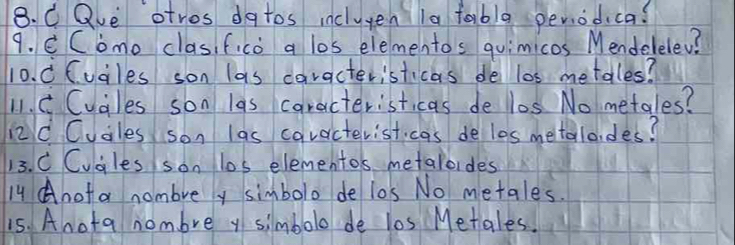 8. ¿ Què otros datos incluyen la tabla periódica?
9. ¿ Còmo clasificò a los elementos quimicos Mendeleleu?
10. ¿ Cuàles son las caracteristicas de los metales?
11. ¿ Cuàles son las caracteristicas de los No metales?
12 ¿ Cuàles son las caracteristicas de los metaloides?
13. ¿ Cuàles son los elementos metaloides
14 Anota nombre y simbolo de los No metales.
15. Anota nombre y simbolo de los Metales.